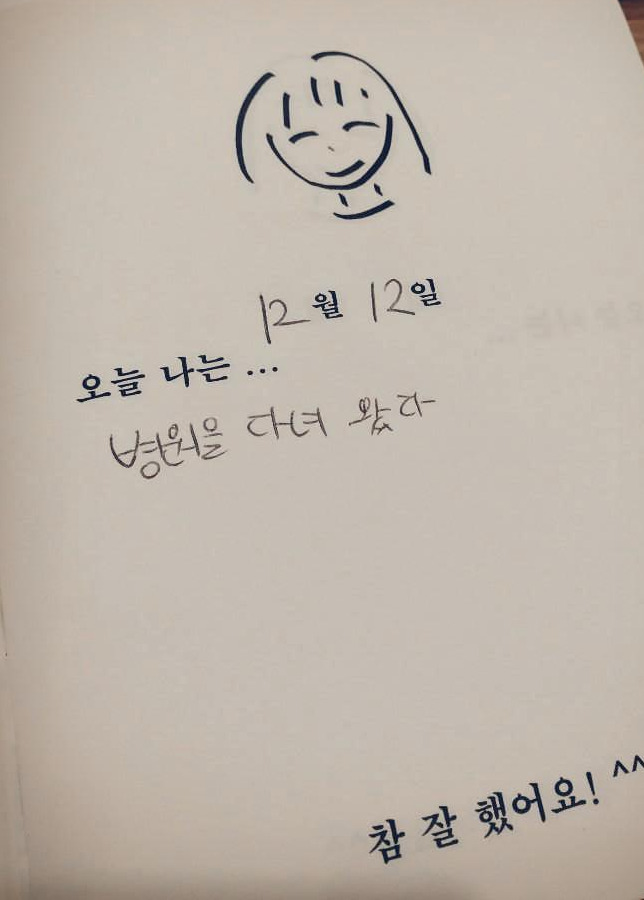 12월 12일
오늘 나는 ...
병원을 다녀 왔다
참 잘 했어요! ^^